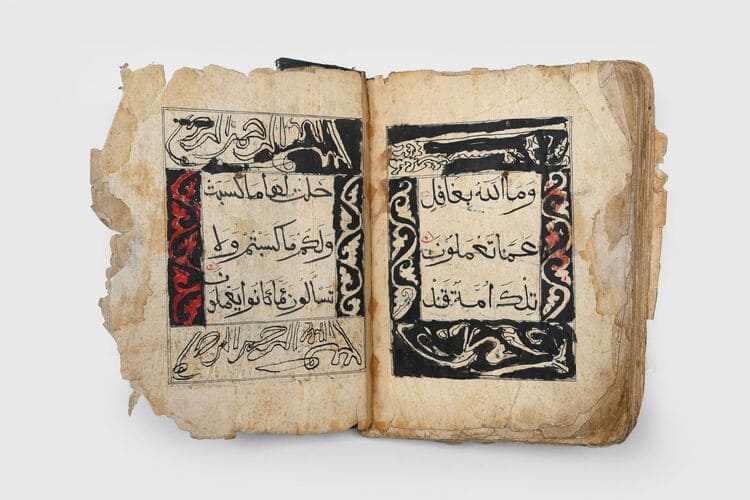 وما الله بغافل
عما تعملون
تلك امة قد
خلت لها ما كسبت
ولكم ما كسبتم ولا
تسالون عما كانوا يعملون